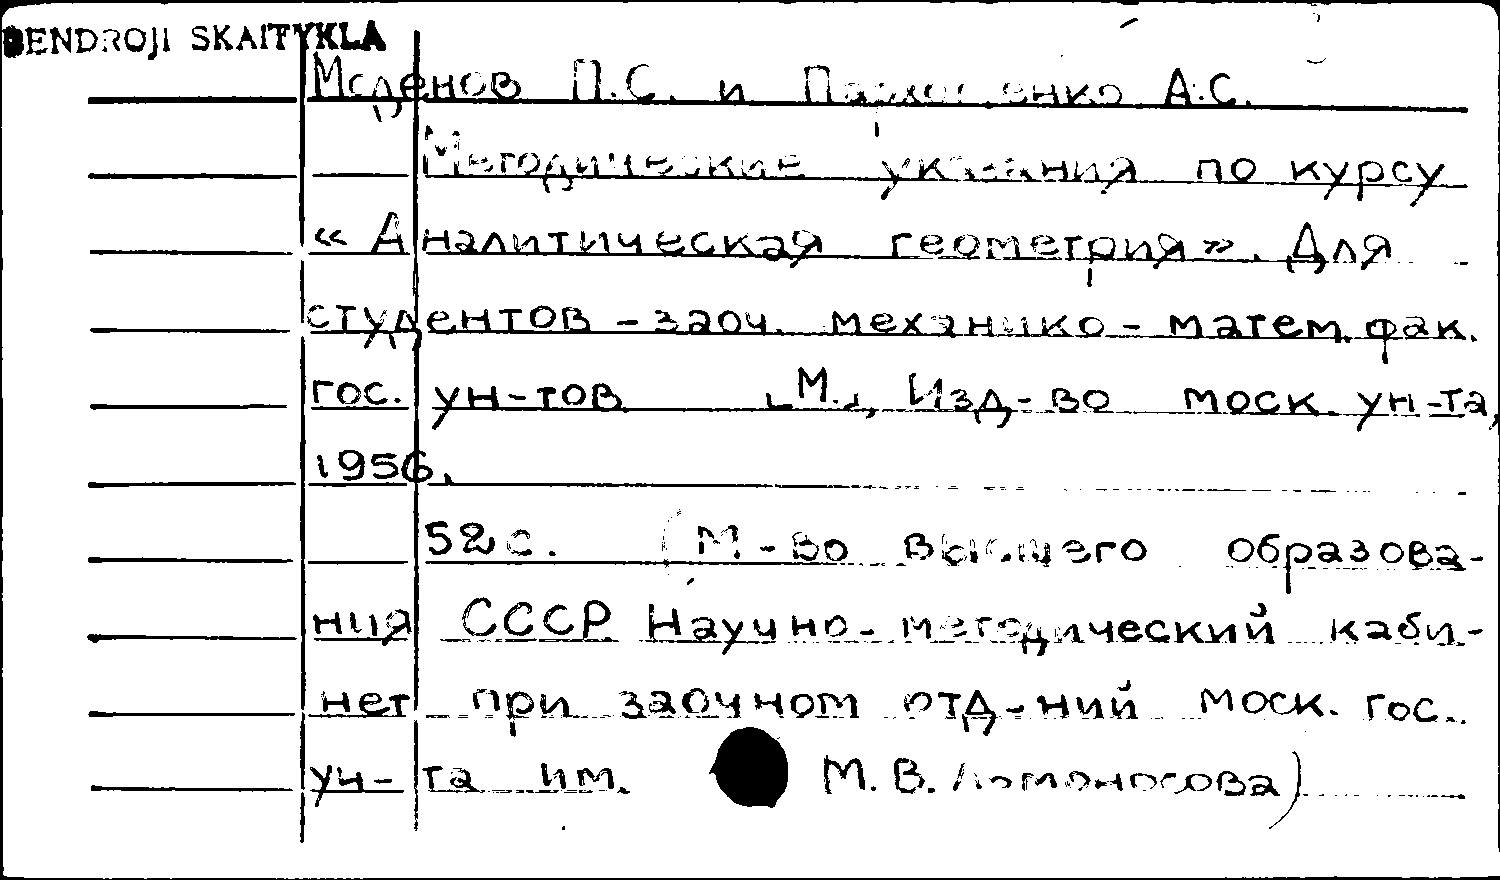 BENDROJI SKAITYKLA
Моденов П.С. и Пархоменко А.С.
Методические указания по курсу
« Аналитическая геометрия». Для
студентов - заоч. механико - матем. фак.
гос. ун-тов [М.], Изд-во моск. ун-та,
1956.
52 с. (М-во высшего образова-
ния СССР Научно-методический каби-
нет при заочном отд-ний моск. гос.
ун-та им. М. В. Ломоносова)